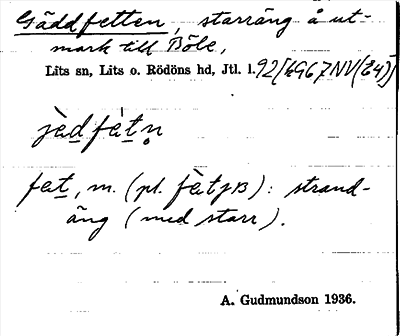 Gäddfetten, starräng å ut-
mark till Böle,
Lits sn, Lits o. Rödöns hd, Jtl. l. 92[k967NV(E4)]
jèd̲fèt̲n̥
fet̲, m. (pl. fètjɐ): strand-
äng (med starr).
A. Gudmundson 1936.